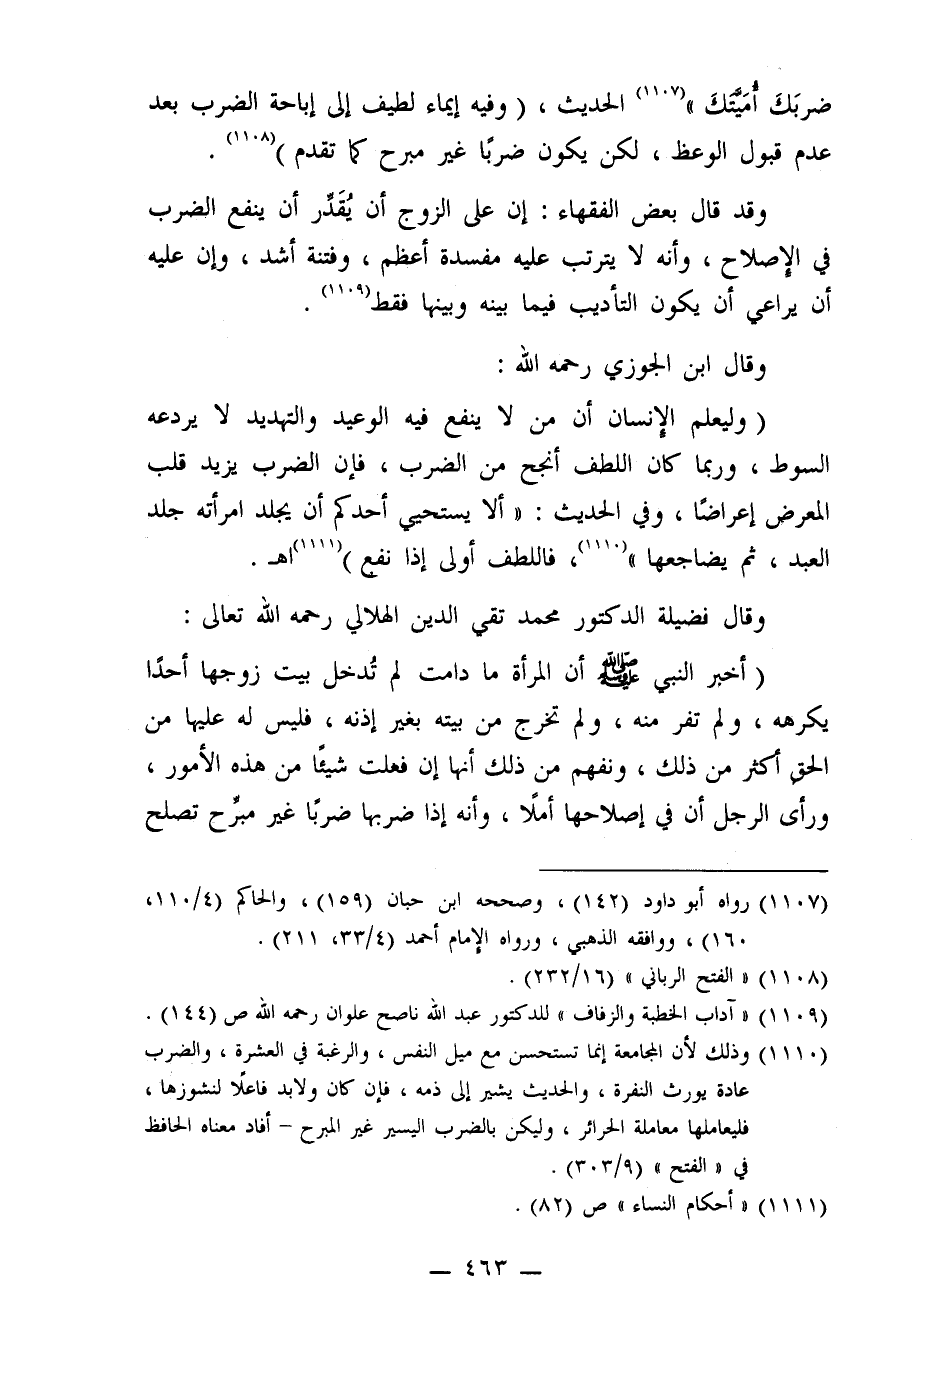 ضربَكَ أُمَيَّتَكَ »(١١٠٧) الحديث ، ( وفيه إيماء لطيف إلى إباحة الضرب بعد
عدم قبول الوعظ ، لكن يكون ضربًا غير مبرح كما تقدم )(١١٠٨) .
وقد قال بعض الفقهاء : إن على الزوج أن يُقَدِّر أن ينفع الضرب
في الإصلاح ، وأنه لا يترتب عليه مفسدة أعظم ، وفتنة أشد ، وإن عليه
أن يراعي أن يكون التأديب فيما بينه وبينها فقط(١١٠٩) .
وقال ابن الجوزي رحمه الله :
( وليعلم الإنسان أن من لا ينفع فيه الوعيد والتهديد لا يردعه
السوط ، وربما كان اللطف أنجح من الضرب ، فإن الضرب يزيد قلب
المعرض إعراضًا ، وفي الحديث : « ألا يستحيي أحدكم أن يجلد امرأته جلد
العبد ، ثم يضاجعها »(١١١٠)، فاللطف أولى إذا نفع )(١١١١)اهـ .
وقال فضيلة الدكتور محمد تقي الدين الهلالي رحمه الله تعالى :
( أخبر النبي ﷺ أن المرأة ما دامت لم تُدخل بيت زوجها أحدًا
يكرهه ، ولم تفر منه ، ولم تخرج من بيته بغير إذنه ، فليس له عليها من
الحق أكثر من ذلك ، ونفهم من ذلك أنها إن فعلت شيئًا من هذه الأمور ،
ورأى الرجل أن في إصلاحها أملًا ، وأنه إذا ضربها ضربًا غير مبرِّح تصلح
(١١٠٧) رواه أبو داود (١٤٢) ، وصححه ابن حبان (١٥٩) ، والحاكم (١١٠/٤،
١٦٠) ، ووافقه الذهبي ، ورواه الإمام أحمد (٣٣/٤، ٢١١) .
(١١٠٨) « الفتح الرباني » (٢٣٢/١٦) .
(١١٠٩) « آداب الخطبة والزفاف » للدكتور عبد الله ناصح علوان رحمه الله ص (١٤٤) .
(١١١٠) وذلك لأن المجامعة إنما تستحسن مع ميل النفس ، والرغبة في العشرة ، والضرب
عادة يورث النفرة ، والحديث يشير إلى ذمه ، فإن كان ولابد فاعلًا لنشوزها ،
فليعاملها معاملة الحرائر ، وليكن بالضرب اليسير غير المبرح – أفاد معناه الحافظ
في « الفتح » (٣٠٣/٩) .
(١١١١) « أحكام النساء » ص (٨٢) .
— ٤٦٣ —